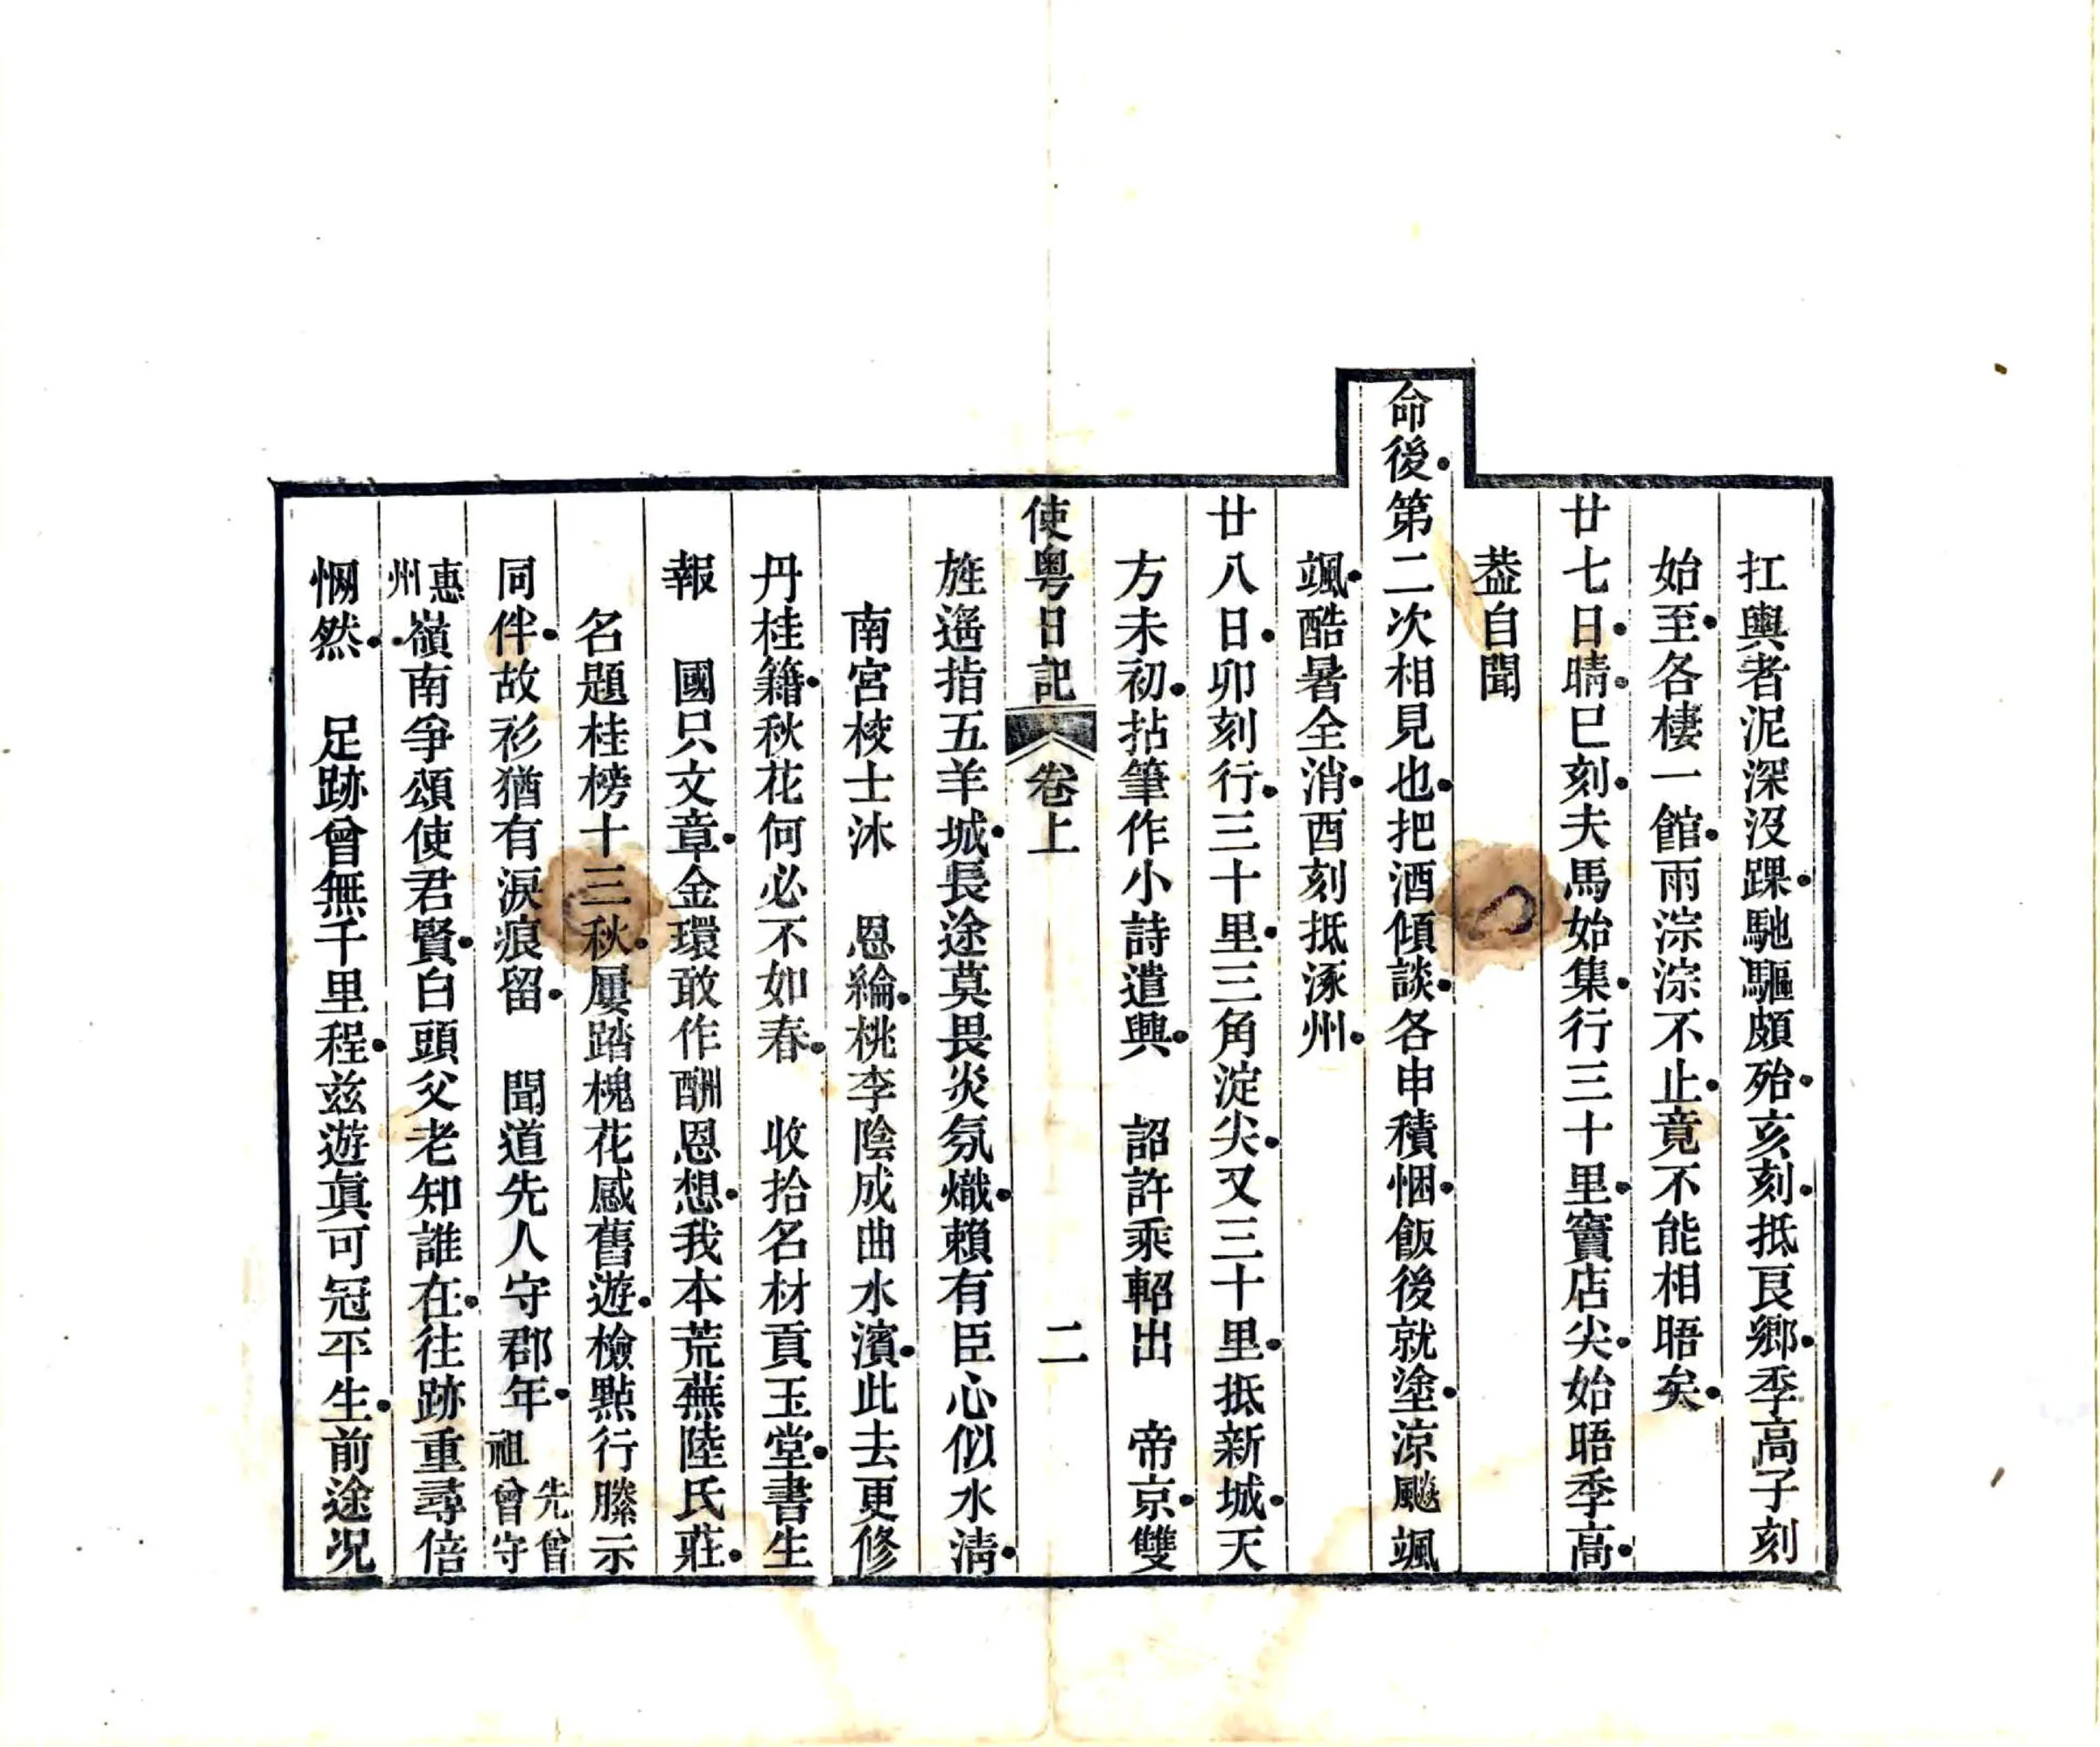 扛輿者泥深沒踝馳驅頗殆亥刻抵良鄉季高子刻
始至各棲一館雨淙淙不止竟不能相晤矣
廿七日晴巳刻夫馬始集行三十里竇店尖始晤季高
葢自聞
命後第二次相見也把酒傾談各申積悃飯後就塗涼飈颯
颯酷暑全消酉刻抵涿州
廿八日卯刻行三十里三角淀尖又三十里抵新城天
方未初拈筆作小詩遣興　詔許乘軺出　帝京雙
使粵日記　卷上　二
旌遙指五羊城長途莫畏炎氛熾賴有臣心似水清
南宮校士沐　恩綸桃李陰成曲水濱此去更修
丹桂籍秋花何必不如春　收拾名材貢玉堂書生
報　國只文章金環敢作酬恩想我本荒蕪陸氏莊
名題桂榜十三秋屢踏槐花感舊遊檢點行縢示
同伴故衫猶有淚痕留　聞道先人守郡年先曾祖曾守
惠州嶺南爭頌使君賢白頭父老知誰在往跡重尋倍
惘然　足跡曾無千里程茲遊眞可冠平生前途况